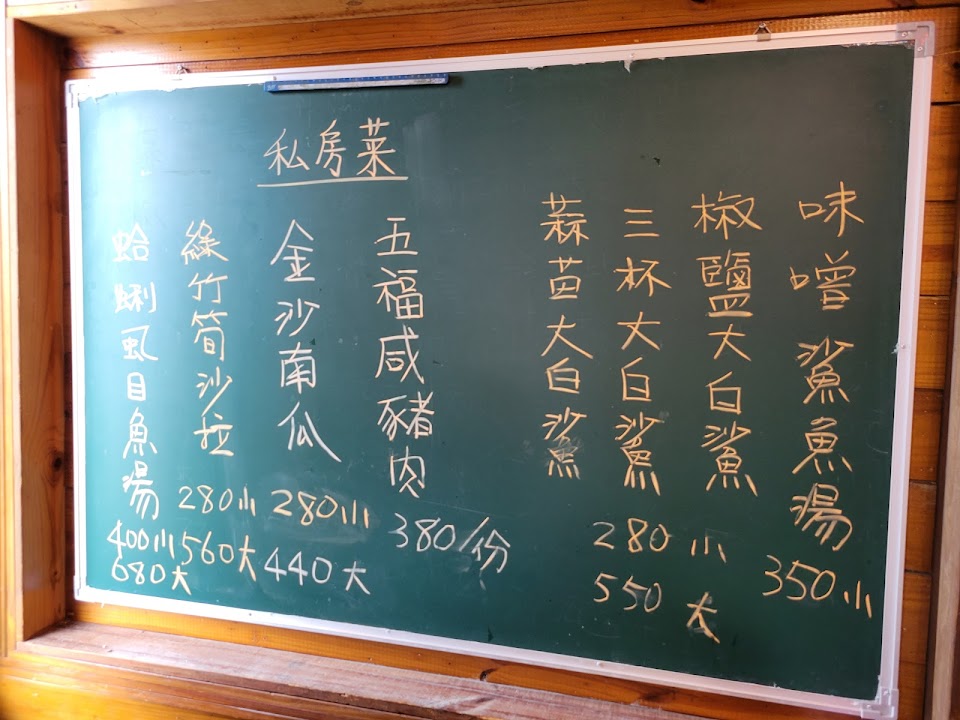 私房菜
味噌鯊魚湯
350小
椒鹽大白鯊
三杯大白鯊
蒜苗大白鯊
280小
550大
五福咸豬肉
380/份
金沙南瓜
280小
440大
綠竹筍沙拉
280小
560大
蛤蜊虱目魚湯
400小
680大